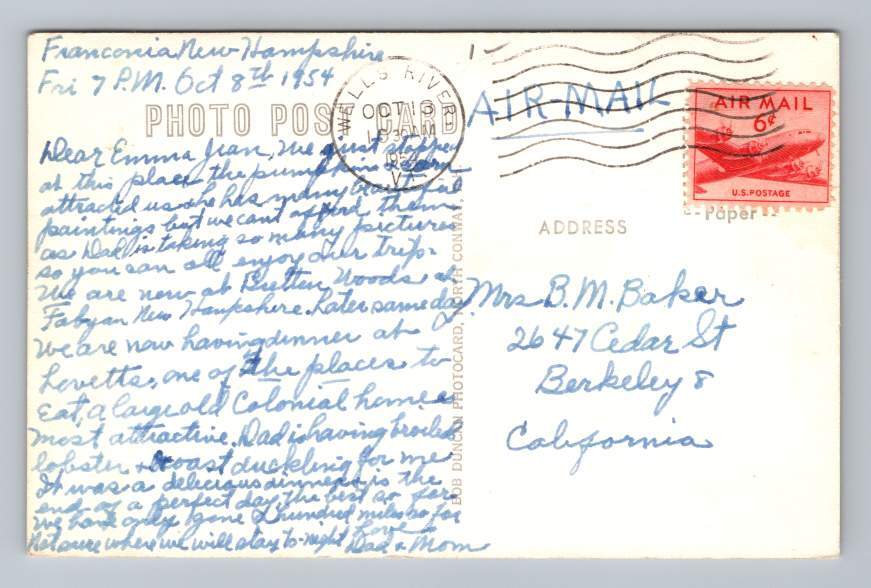 Franconia New Hampshire
Fri 7 P.M. Oct 8th 1954
PHOTO POST CARD
Dear Emma Jean, We just stopped
at this place the pumpkins
attracted us & he has many beautiful
paintings but we cant afford them
as Dad is taking so many pictures
so you can all enjoy our trip.
We are now at Bretten Woods at
Fabyan New Hampshire. Later same day
We are now having dinner at
Lovetts, one of the places to
Eat, a large old Colonial home
most attractive. Dad is having broiled
lobster & roast duckling for me
It was a delicious dinner, is the
end of a perfect day, the best so far
We have only gone 2 hundred miles so far
Not sure where we will stay to-night Love
Dad & Mom
BOB DUNCAN PHOTOCARD, NORTH CONWAY,
WELLS RIVER
OCT 13
AM
1954
VT.
AIR-MAIL
AIR MAIL
6¢
U.S. POSTAGE
Paper
ADDRESS
Mrs B. M. Baker
2647 Cedar St
Berkeley 8
California